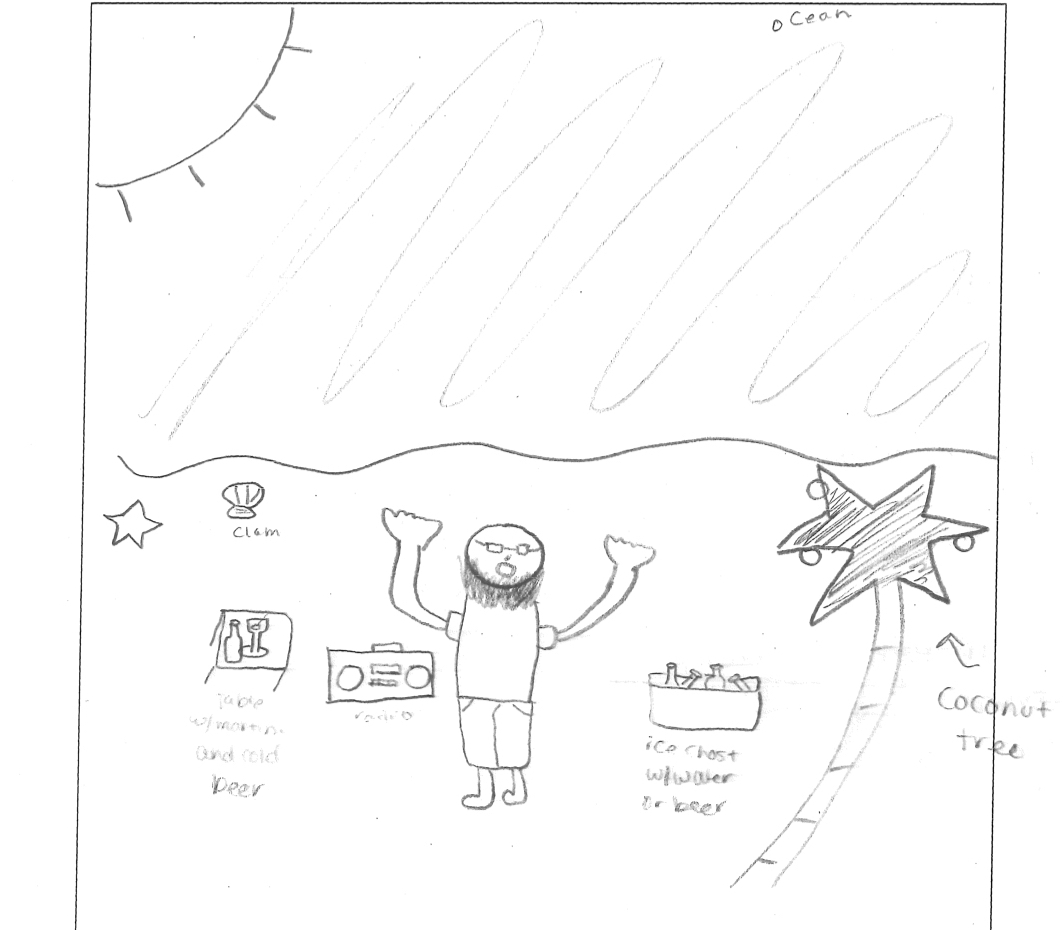 ocean
clam
Table
w/martini
and cold
beer
radio
ice chest
w/water
or beer
Coconut
tree